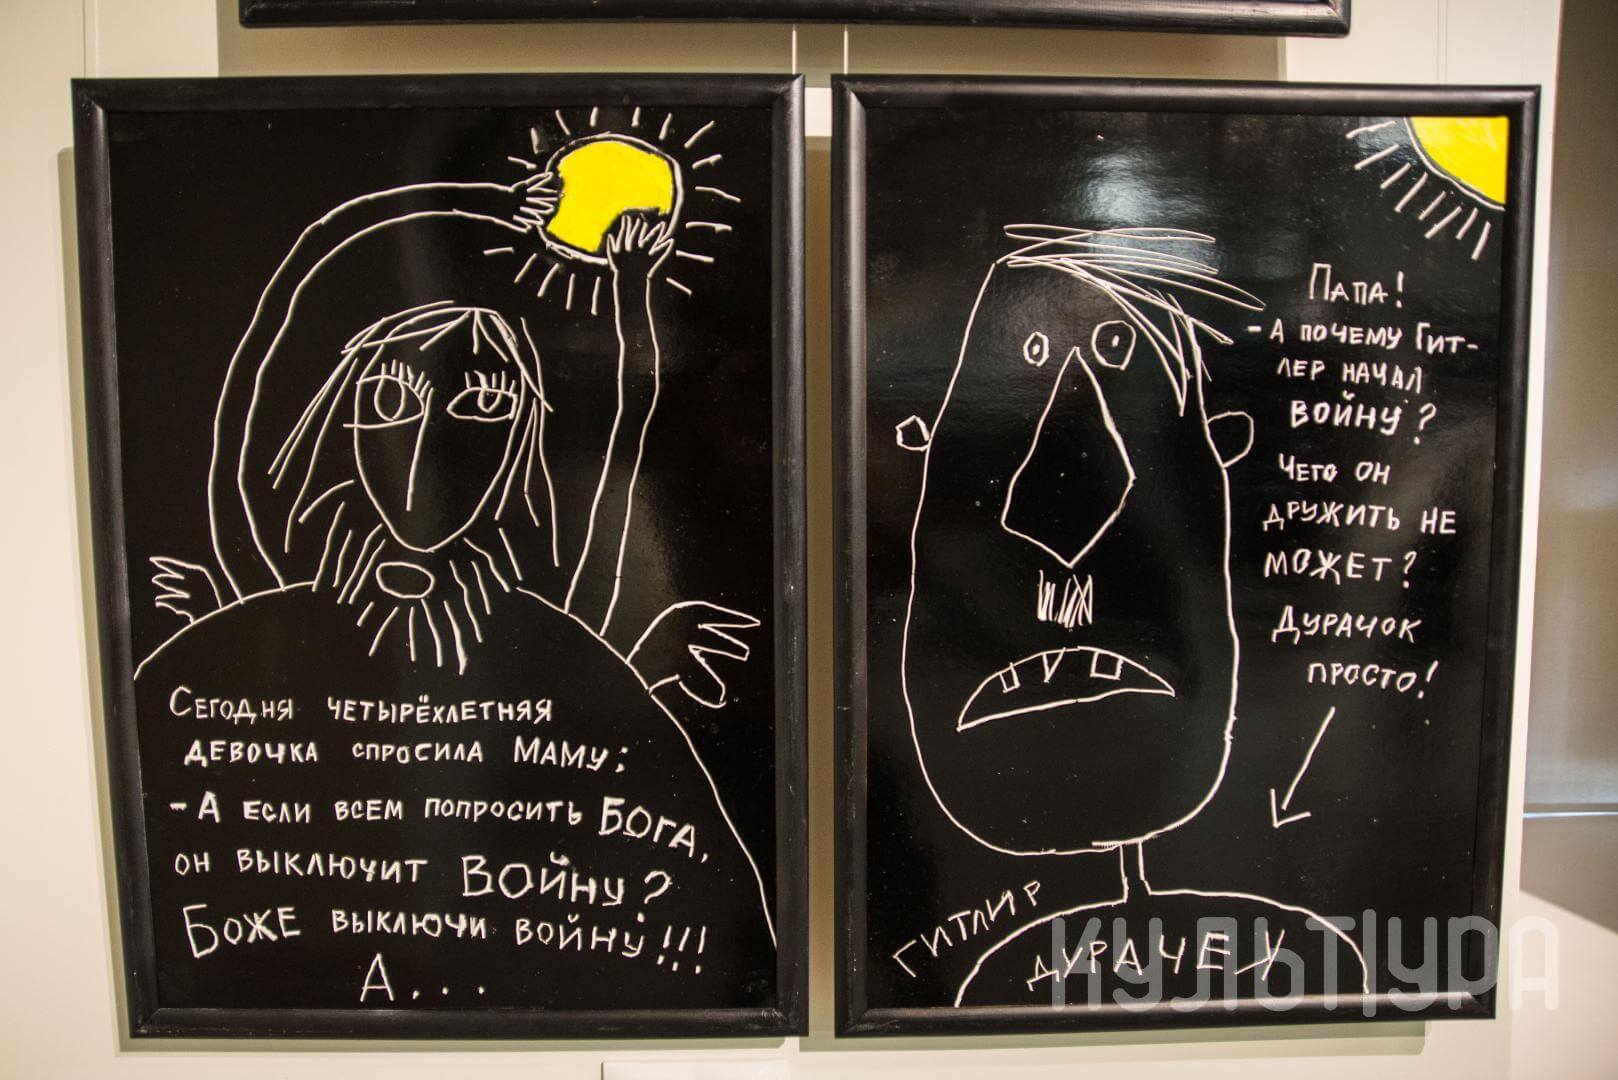 Сегодня четырёхлетняя
девочка спросила Маму:
- А если всем попросить Бога,
он выключит войну?
Боже выключи войну!!!
А...
Папа!
- А почему Гит-
лер начал
войну?
Чего он
дружить не
может?
Дурачок
просто!
ГИТЛИР
ДУРАЧЕК
КУЛЬТУРА